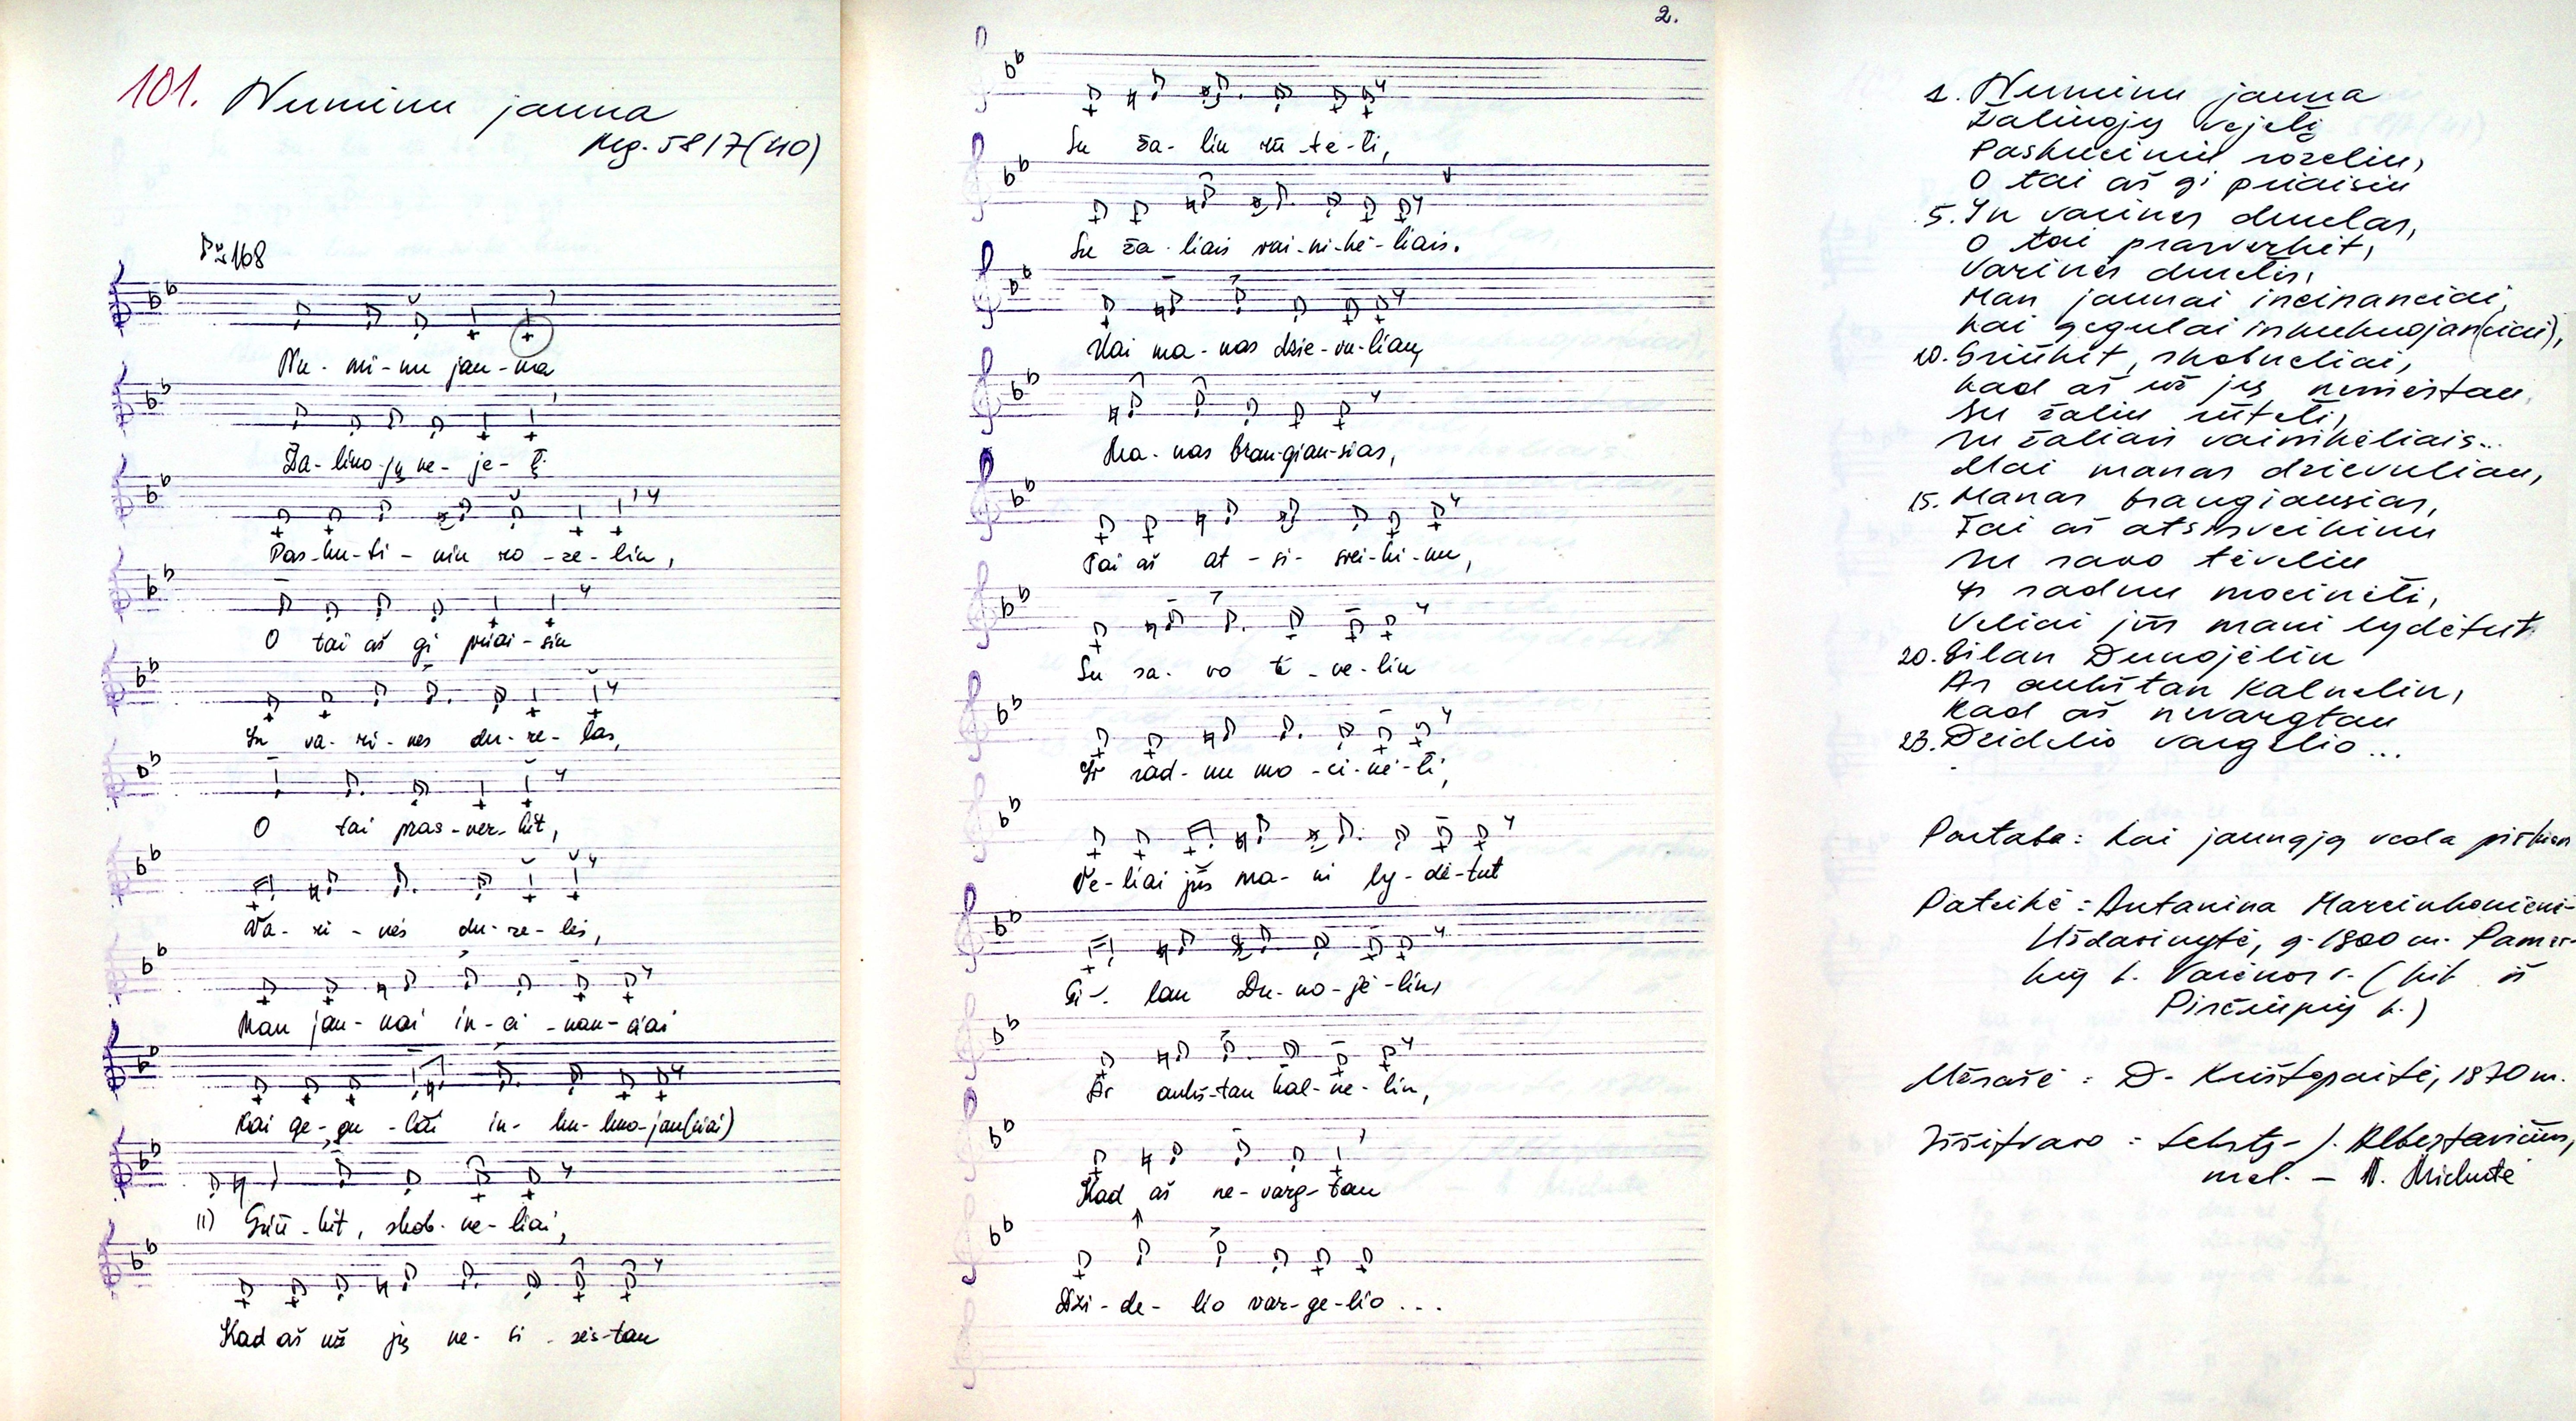 101. Numinu jauna
Mg. 5817(40)
168
Nu - mi - nu jau - na
Ža - lino - jų ve - je - lį
Pas - ku - ti - niu ro - ze - liu,
O tai aš gi priai - siu
In va - ri - nes du - re - las,
O tai pras - ver - kit,
Va - ri - nės du - re - lės,
Man jau - nai in - ei - nan - čiai
Kai ge - gu - lai in - ku - kuo - jan(čiai)
11) Griū - kit, skob - ne - liai,
Kad aš už jų ne - si - rės - tau
2.
Su ža - liu rū - te - li,
Su ža - liais vai - ni - kė - liais.
Mai ma - nas dzie - vu - liau,
Ma - nas bran - giau - sias,
Tai aš at - si - svei - ki - nu,
Su sa - vo tė - ve - liu
Ir rad - nu mo - ci - nė - li,
Ve - liai jūs ma - ni ly - dė - tut
Gi - lan Du - no - jė - liu,
Ar aukš - tan kal - ne - lin,
Kad aš ne - varg - tau
Dzi - de - lio var - ge - lio . . .
1. Numinu jauna
Žalinojų vejelį
Paskuciniu rozeliu,
O tai aš gi priaisiu
5. In varines durelas,
O tai prasverkit,
Varinės durelės,
Man jaunai ineinančiai,
Kai gegulai inkukuojan(čiai),
10. Griūkit, skobneliai,
Kad aš už jų
Su žaliu rūteli,
Su žaliais vainikėliais...
Mai manas dzievuliau,
15. Manas brangiausias,
Tai aš atsisveikinu
Su savo tėveliu
Ir radnu mocinėli,
Veliai jūs mani lydėtut
20. Gilan Dunojėlin
Ar aukštan kalnelin,
Kad aš nevargtau
23. Dzidelio vargelio...
Pastaba: Kai jaunąją veda pirkion
Pateikė: Antanina Marcinkonienė-
Uždavinytė, g. 1800 m. Pamer-
kių k. Varėnos r. (kil. iš
Pirčiupių k.)
Užrašė: D. Krištopaitė, 1970 m.
Iššifravo: tekstą - J. Albertavičius,
mel. — N. Mickutė